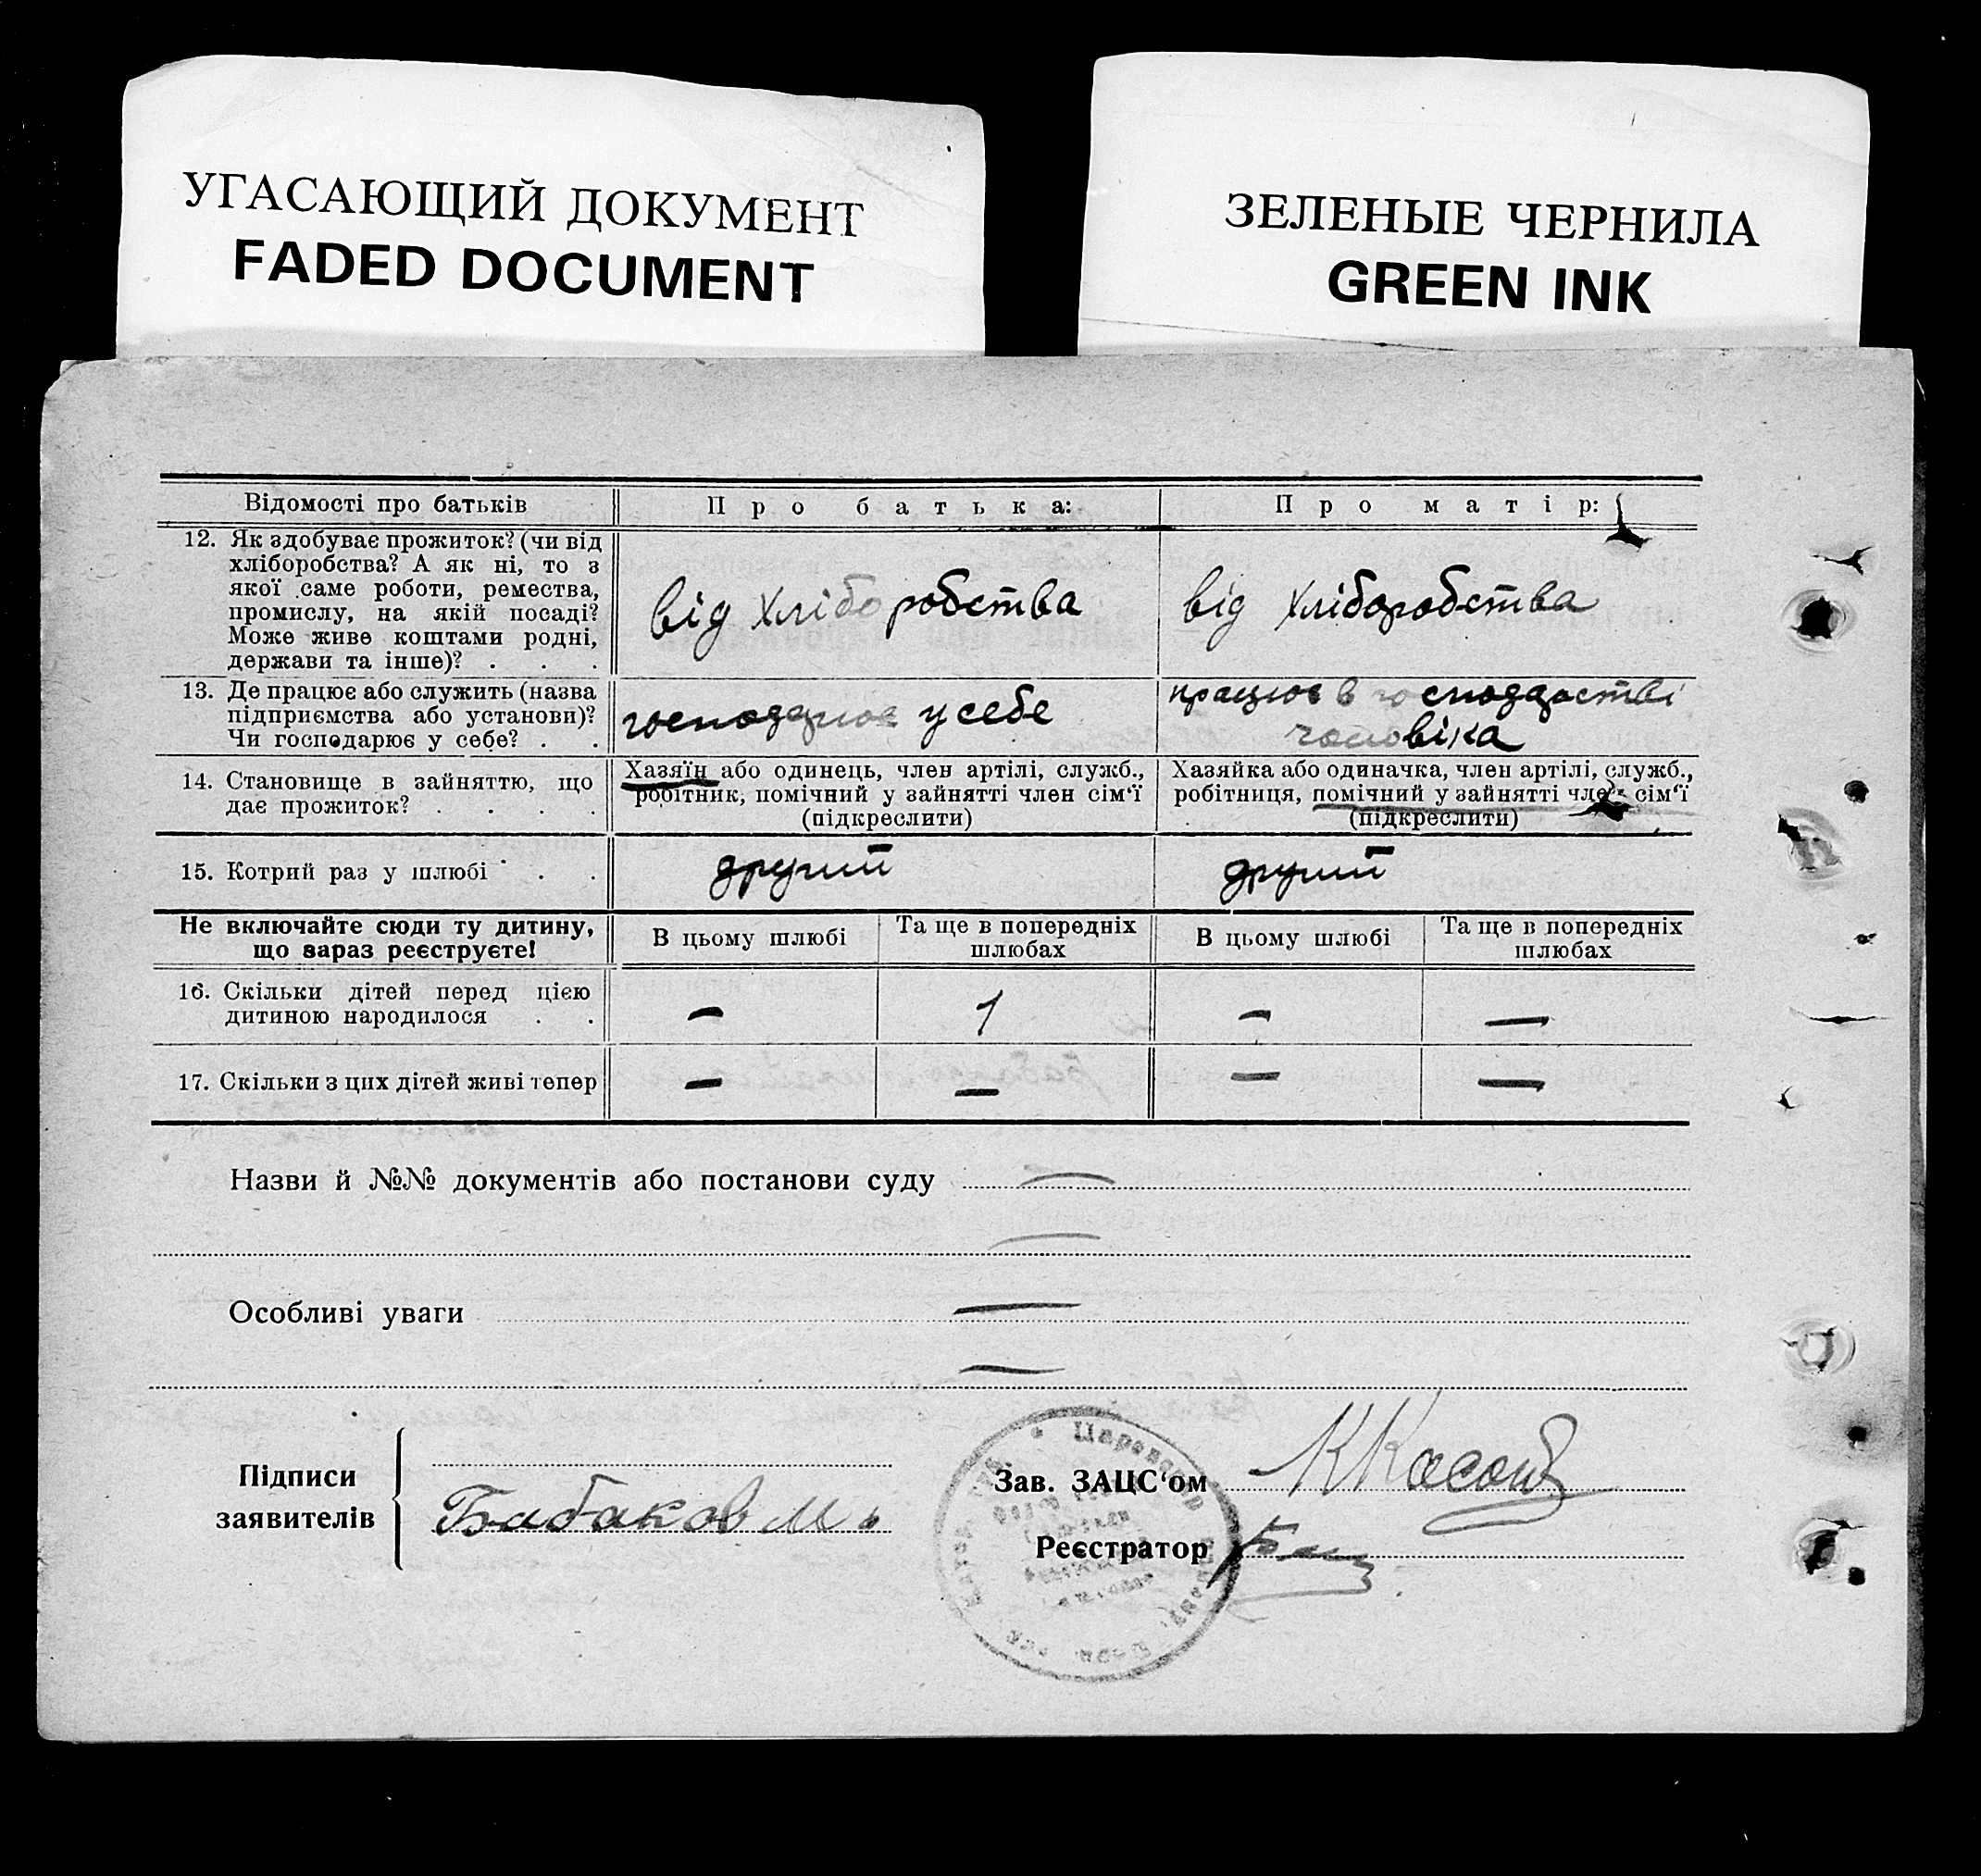 УГАСАЮЩИЙ ДОКУМЕНТ
FADED DOCUMENT
ЗЕЛЕНЫЕ ЧЕРНИЛА
GREEN INK
Відомості про батьків
Про батька:
Про матір:
12. Як здобуває прожиток? (чи від
хліборобства? А як ні, то з
якої саме роботи, ремества,
промислу, на якій посаді?
Може живе коштами родні,
держави та інше)? . . .
від хліборобства
від хліборобства
13. Де працює або служить (назва
підприємства або установи)?
Чи господарює у себе? . .
господарює у себе
працює в господарстві
чоловіка
14. Становище в зайняттю, що
дає прожиток? . . . .
Хазяїн або одинець, член артілі, служб.,
робітник, помічний у зайнятті член сім'ї
(підкреслити)
Хазяйка або одиначка, член артілі, служб.,
робітниця, помічний у зайнятті член сім'ї
(підкреслити)
15. Котрий раз у шлюбі . . .
другий
другий
Не включайте сюди ту дитину,
що зараз реєструєте!
В цьому шлюбі
Та ще в попередніх
шлюбах
В цьому шлюбі
Та ще в попередніх
шлюбах
16. Скільки дітей перед цією
дитиною народилося . .
— 1 — —
17. Скільки з цих дітей живі тепер
— — — —
Назви й №№ документів або постанови суду —
—
Особливі уваги —
—
Підписи
заявителів
Бабаков М.
Зав. ЗАЦС'ом
Реєстратор